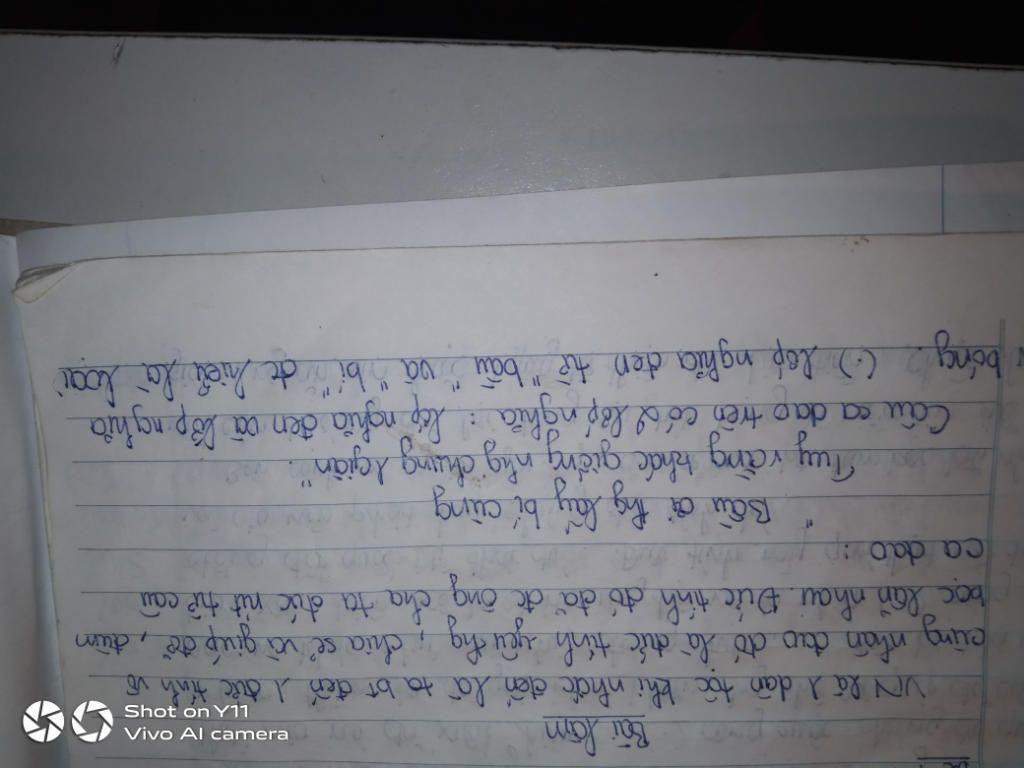 Bài làm
VN là 1 dân tộc khi nhắc đến là ta bt đến 1 đức tính vô
cùng nhân đạo đó là đức tính yêu thg, chia sẻ và giúp đỡ, đùm
bọc lẫn nhau. Đức tính đó đã đc ông cha ta đúc rút từ câu
ca dao:
" Bầu ơi thg lấy bí cùng
Tuy rằng khác giống nhg chung 1 giàn"
Câu ca dao trên có 2 lớp nghĩa: lớp nghĩa đen và lớp nghĩa
bóng. (.) Lớp nghĩa đen từ "bầu" và "bí" đc hiểu là loại
Shot on Y11
Vivo AI camera